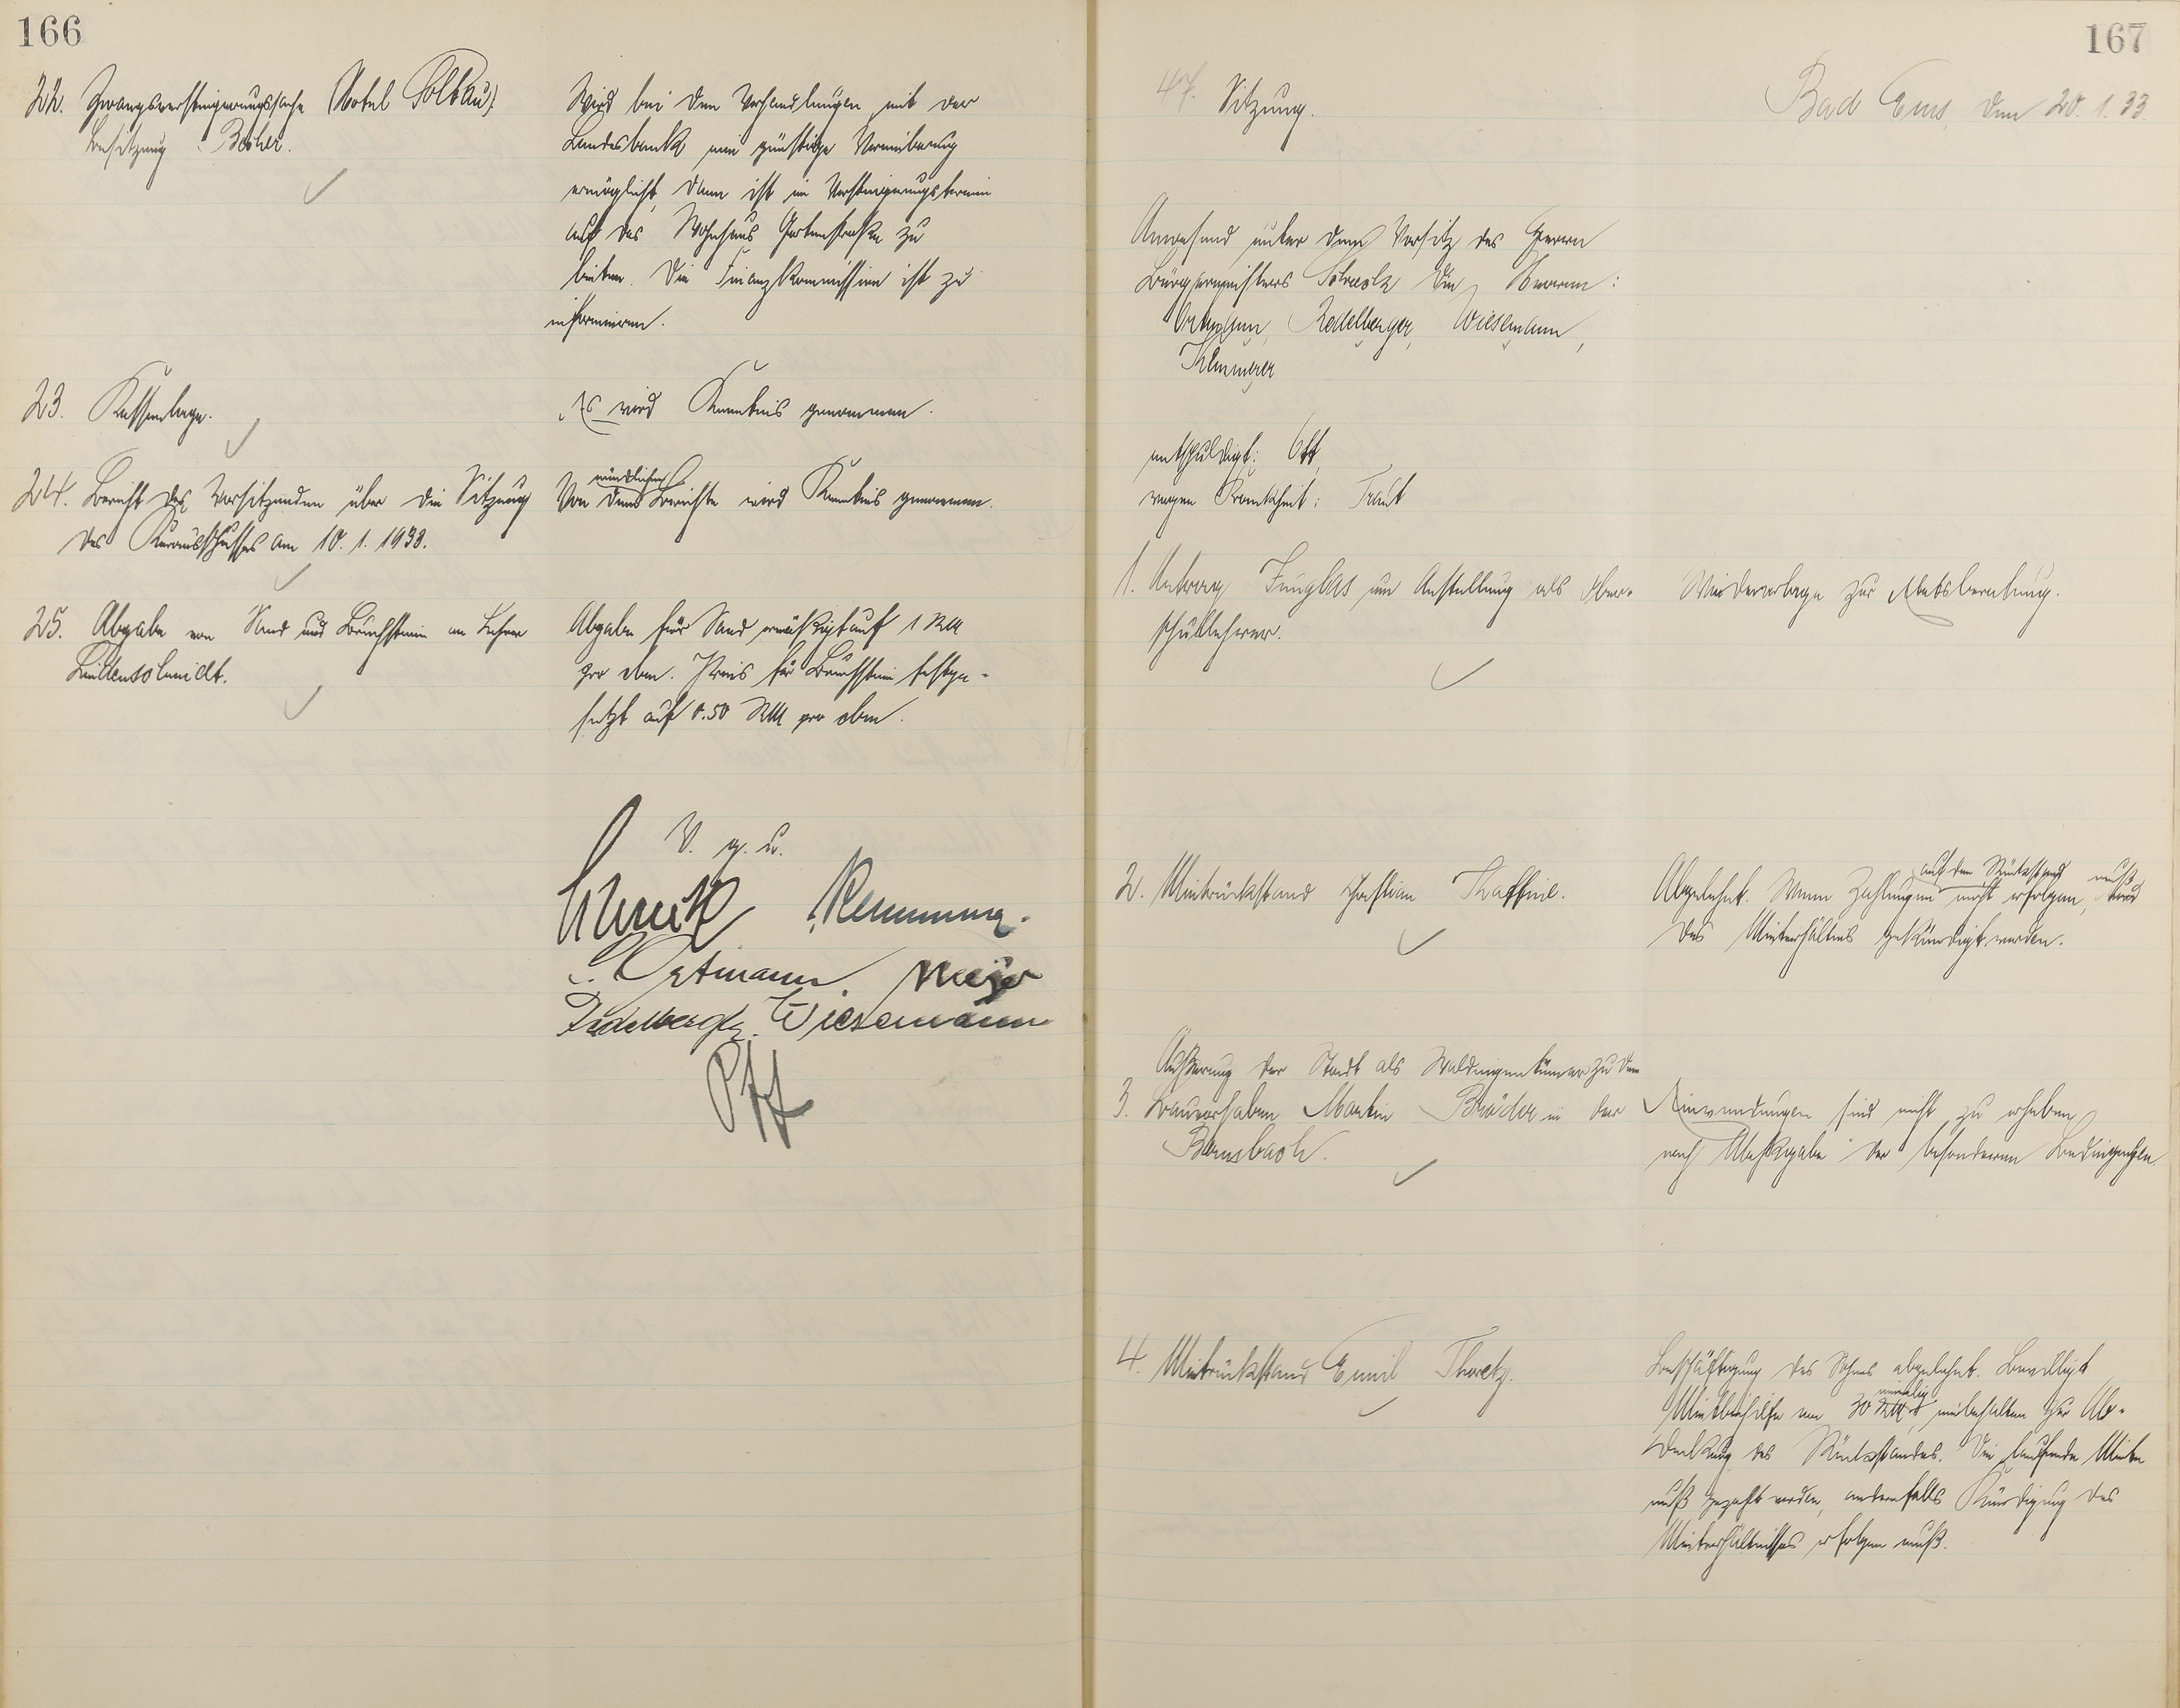 166
22. Zwangsversteigerungssache (Hotel Solbau)
Besitzung Becher.
Wird bei den Verhandlungen mit der
Landesbank eine günstige Vereinbarung
ermöglicht, dann ist im Versteigerungstermin
auf das Wohnhaus Gartenstraße zu
bieten. Die Finanzkommission ist zu
informieren.
23. Kassenlage.
Es wird Kenntnis genommen.
24. Bericht des Vorsitzenden über die Sitzung
des Kurausschusses am 10. 1. 1933.
mündlichen
Von dem Berichte wird Kenntnis genommen.
25. Abgabe von Sand und Bruchstein an Lehrer
Lindenschmidt.
Abgabe für Sand ermäßigt auf 1 RM
pro cbm. Preis für Bruchstein festge-
setzt auf 0.50 RM pro cbm.
V. g. u.
Schreck Klemmer.
Ortmann. Meyer
Redelberger. Wiesemann
Ott
167
47. Sitzung.
Bad Ems, den 20. 1. 33.
Anwesend unter dem Vorsitz des Herrn
Bürgermeisters Schreck die Herren:
Ortmann, Redelberger, Wiesemann,
Klemmer
entschuldigt: Ott,
wegen Krankheit: Traut
1. Antrag Funglas um Anstellung als Ober-
schullehrer.
Wiedervorlage zur Etatsberatung.
2. Mietrückstand Christian
auf den Rückstand muß
Abgelehnt. Wenn Zahlungen nicht erfolgen,
das Mietverhältnis gekündigt werden.
Äußerung der Stadt als Waldeigentümer zu dem
3. Bauvorhaben Martin Bröder in der
Braunsbach.
Einwendungen sind nicht zu erheben
nach Maßgabe der besonderen Bedingungen
4. Mietrückstand Emil Theretz.
Beschäftigung des Sohnes abgelehnt. Bewilligt
einmalig
Mietbeihilfe von 30 RM, einbehalten zur Ab-
deckung des Rückstandes. Die laufende Miete
muß gezahlt werden, andernfalls Kündigung des
Mietverhältnisses erfolgen muß.